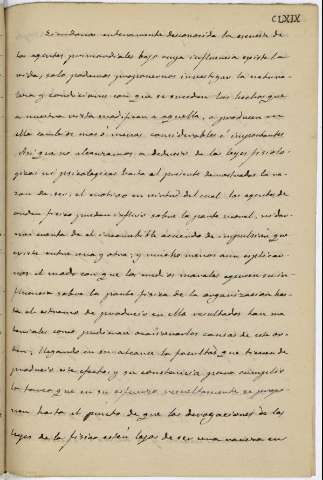 CLXIX
Siéndonos enteramente desconocida la esencia de
los agentes primordiales bajo cuya influencia existe la
vida, solo podemos proponernos investigar la natura-
leza y condiciones con que se suceden los hechos que
a nuestra vista modifican a aquella, o producen en
ella cambios mas ó menos considerables é importantes
Asi que no alcanzamos a deducir de las leyes fisiolo-
gicas ni psicologicas hasta el presente demostradas la ra-
zon de ser, el motivo en virtud del cual los agentes de
orden fisico puedan influir sobre la parte moral, ni dar-
nos cuenta de el incontestable acuerdo de impulsión que
existe entre una y otra; y mucho menos aun explicar-
nos el modo con que los medios morales ejercen su in-
fluencia sobre la parte fisica de la organizacion has-
ta el estremo de producir en ella resultados tan ma-
teriales como pudieran ocasionarlos causas de este or-
den; llegando en su alcance la facultad que tienen de
producir este efecto, y su constancia para cumplir
la tarea que en su esfuerzo
hasta el punto de que las derogaciones de las
leyes de la fisica esten lejos de ser una rareza en